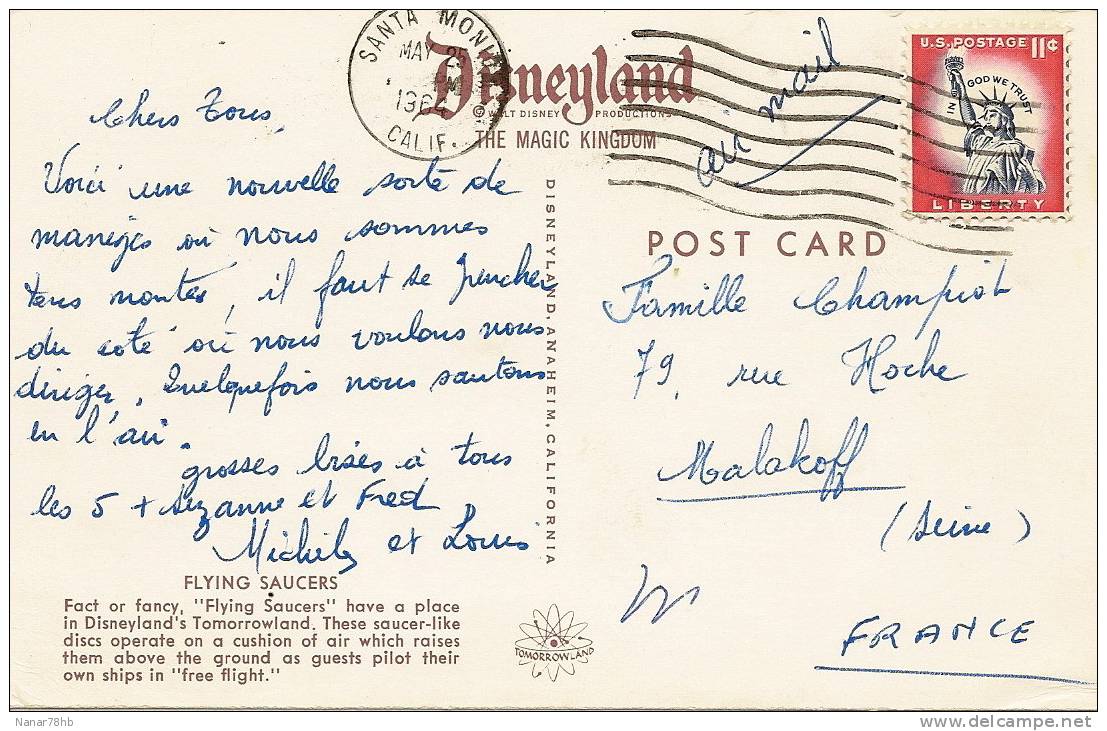 SANTA MONICA
MAY 25
PM
196
CALIF.
Disneyland
© WALT DISNEY PRODUCTIONS
THE MAGIC KINGDOM
air mail
U.S. POSTAGE 11¢
IN GOD WE TRUST
LIBERTY
Chers Tous,
Voici une nouvelle sorte de
manèges où nous sommes
tous montés, il faut se pencher
du coté où nous voulons nous
diriger. Quelquefois nous sautons
en l'air.
grosses bises à tous
les 5 + Suzanne et Fred
et Louis
DISNEYLAND, ANAHEIM, CALIFORNIA
POST CARD
Famille Champiot
79, rue Hoche
Malakoff
(Seine)
FRANCE
FLYING SAUCERS
Fact or fancy, "Flying Saucers" have a place
in Disneyland's Tomorrowland. These saucer-like
discs operate on a cushion of air which raises
them above the ground as guests pilot their
own ships in "free flight."
TOMORROWLAND
Nanar78hb
delcampe.net